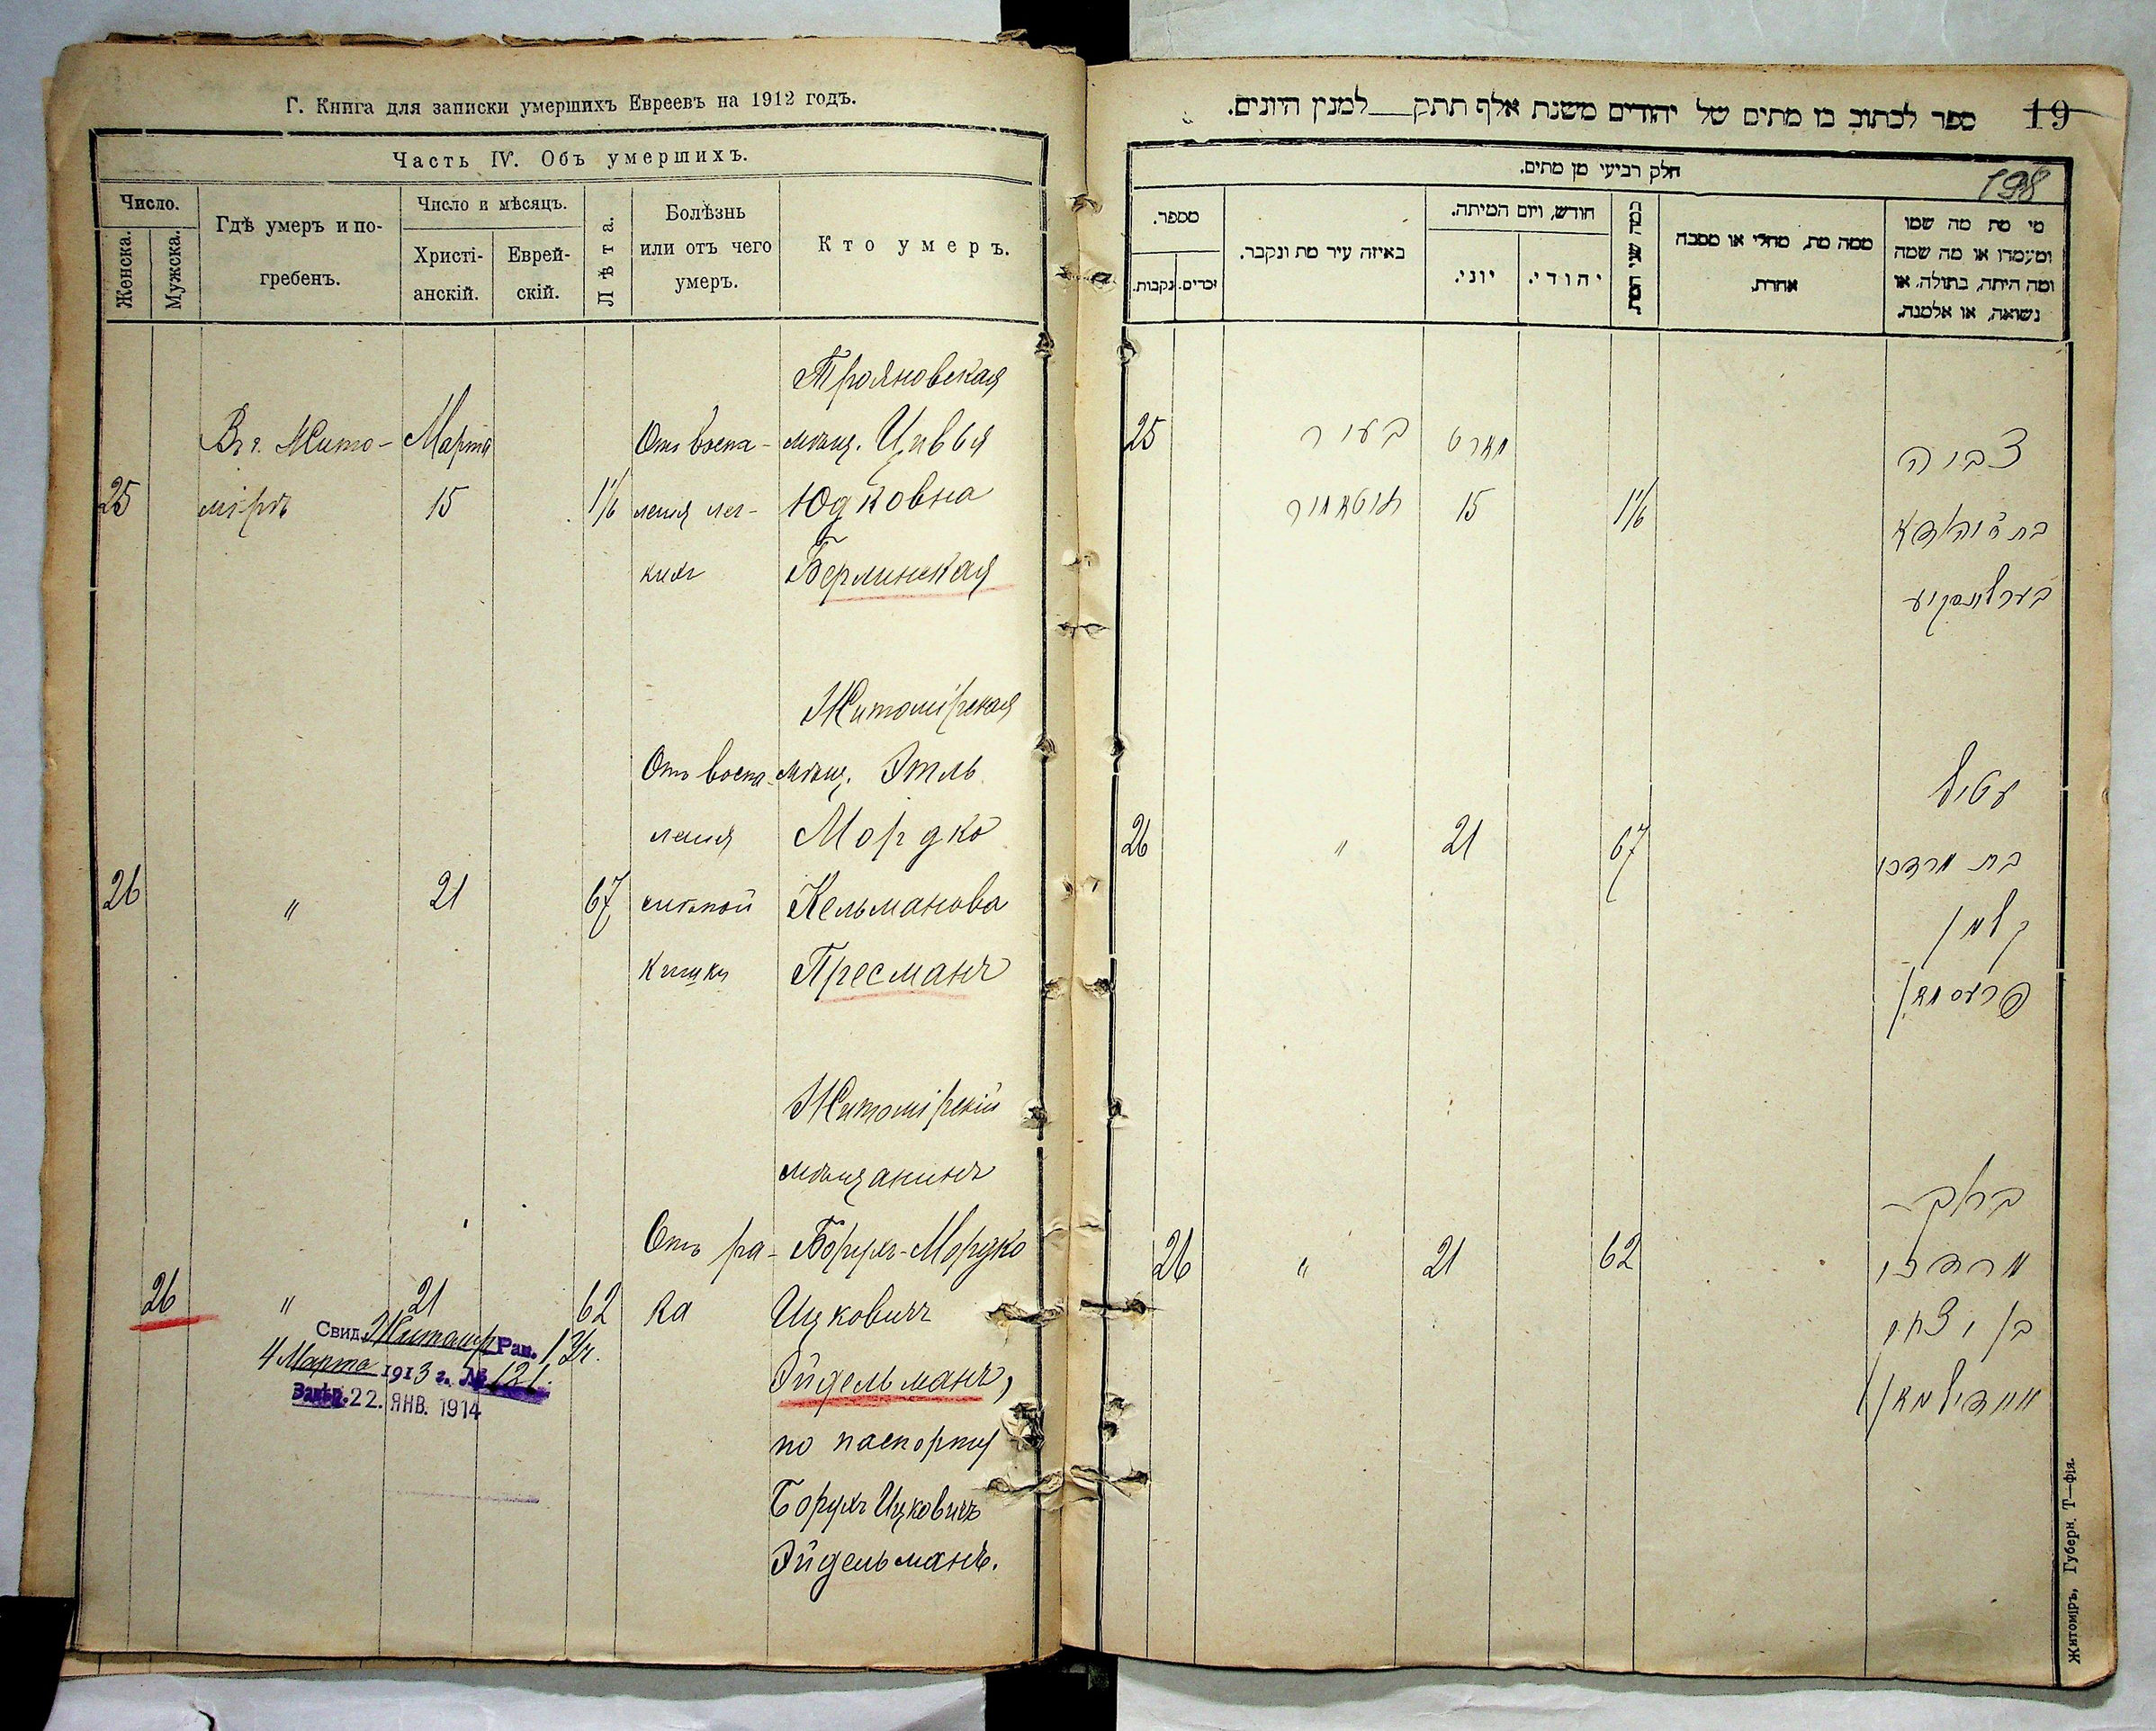 Г. Книга для записки умершихъ Евреевъ на 1912 годъ.
Часть IV. Объ умершихъ.
Число.
Женска.
Мужска.
Гдѣ умеръ и по-
гребенъ.
Число и мѣсяцъ.
Христі-
анскій.
Еврей-
скій.
Лѣта.
Болѣзнь
или отъ чего
умеръ.
Кто умеръ.
Трояновская
Въ г. Жито- Марта Отъ воспа- мѣщ. Цивья
25 мірѣ 15 1 1/6 ленія лег- Юдковна
кихъ Берлинская
Житомірская
Отъ воспа- мѣщ. Этль
ленія Мордко
26 " 21 67 слѣпой Кельманова
кишки Пресманъ
Житомірскій
мѣщанинъ
Отъ ра- Борухъ-Мордко
26 " 21 62 ка Ицковичъ
Эйдельманъ,
по паспорту
Борухъ Ицковичъ
Эйдельманъ.
Свид. Житомір Рав. 1 Уч.
4 Марта 1913 г. № 121.
Завѣр. 22. ЯНВ. 1914
ספר לכתוב בו מתים של יהודים משנת אלף תתק למנין היונים.
19
198
חלק רביעי מן מתים.
מספר.
נקבות.
זכרים.
באיזה עיר מת ונקבר.
חודש, ויום המיתה.
יוני.
יהודי.
כמה שני המת
ממה מת, מחלי או מסבה
אחרת.
מי מת מה שמו
ומעמדו או מה שמה
ומה היתה, בתולה, או
נשואה, או אלמנה.
25 בעיר מארט צביה
זיטאמיר 15 1 1/6 בת יודקא
בערלינסקיע
עטיל
26 " 21 67 בת מרדכי
קלמן
פרעסמאן
ברוך-
26 " 21 62 מרדכי
בן יצחק
איידילמאן
Житоміръ, Губерн. Т—фія.